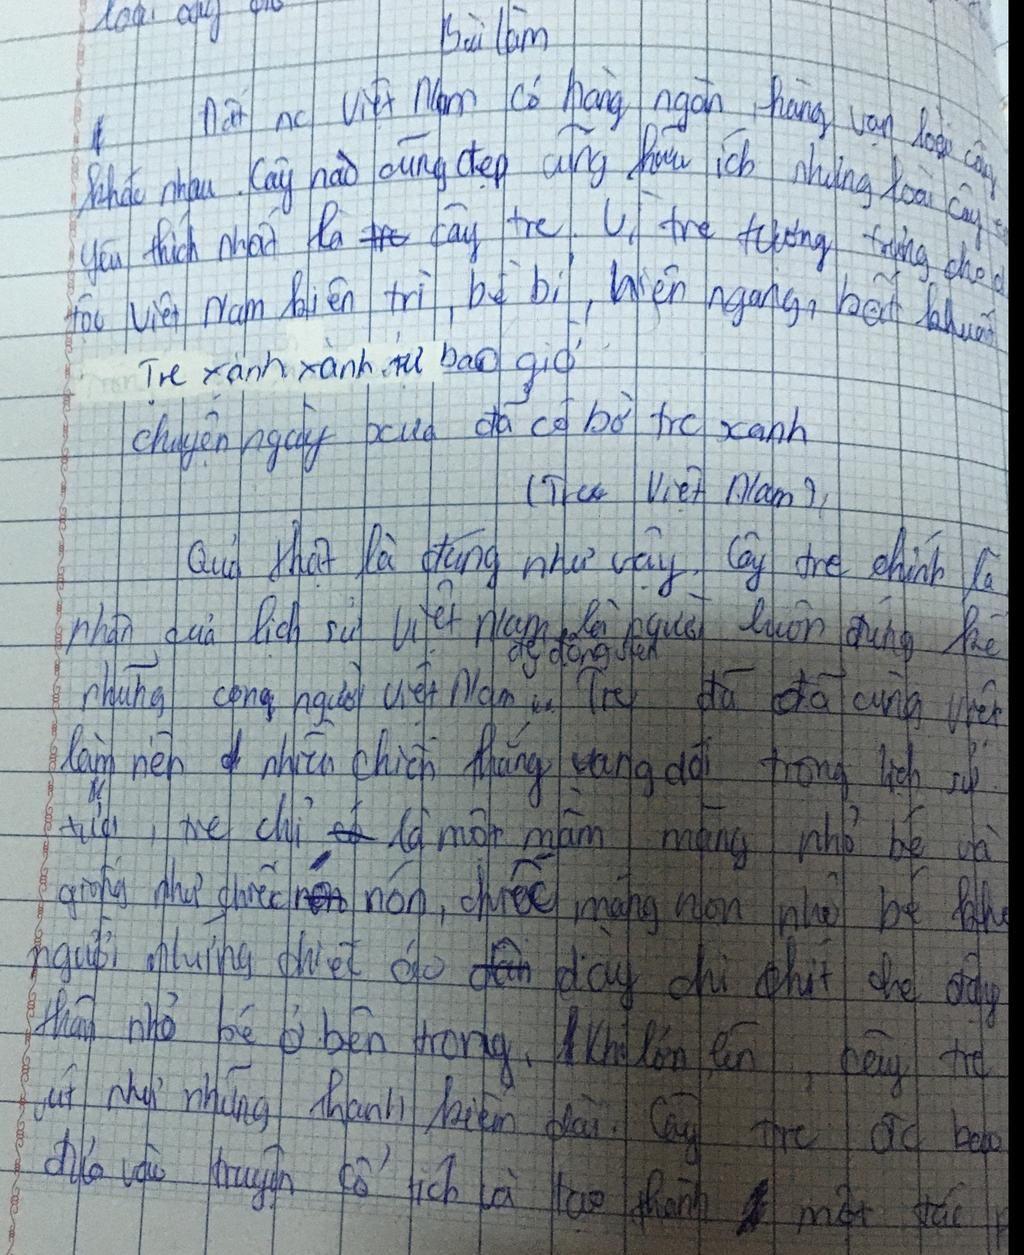 Bài làm
Đất nc Việt Nam có hàng ngàn, hàng vạn loài cây
khác nhau. Cây nào cũng đẹp cũng hữu ích nhưng loài cây
yêu thích nhất là tre cây tre. Vì tre tượng trưng cho d
tộc Việt Nam kiên trì, bê bỉ, hiên ngang, bất khuất
Tre xanh xanh tự bao giờ
chuyện ngày xưa đã có bờ tre xanh
(Tre Việt Nam)
Quả thật là đúng như vậy. Cây tre chính là
nhân quả lịch sử Việt Nam, là người luôn đứng kề
những công người Việt Nam Tre đã đã cùng Việt
làm nên nhiều chiến thắng vang dội trong lịch sử.
tre chỉ là một mầm măng nhỏ bé và
giống như chiếc nón nón, chiếc măng non nhỏ bé
người những chiếc áo dày chi chít che đậy
thân nhỏ bé ở bên trong. Khi lớn lên, cây tre
vút như những thanh kiếm dài. Cây tre đc
vào truyện cổ tích và tạo thành một tác